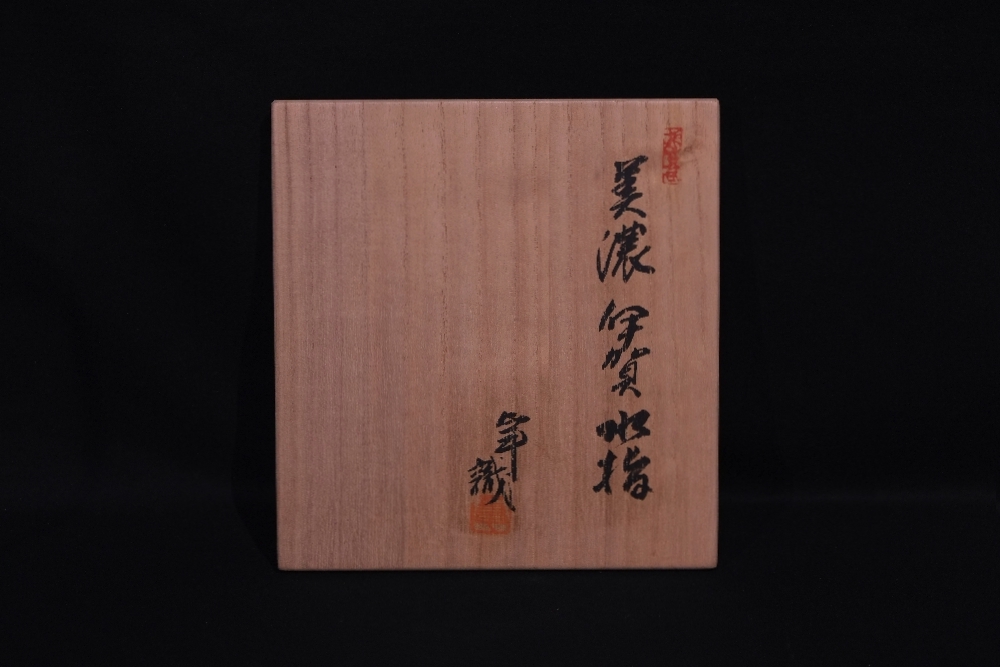 美濃伊賀水指
年
識